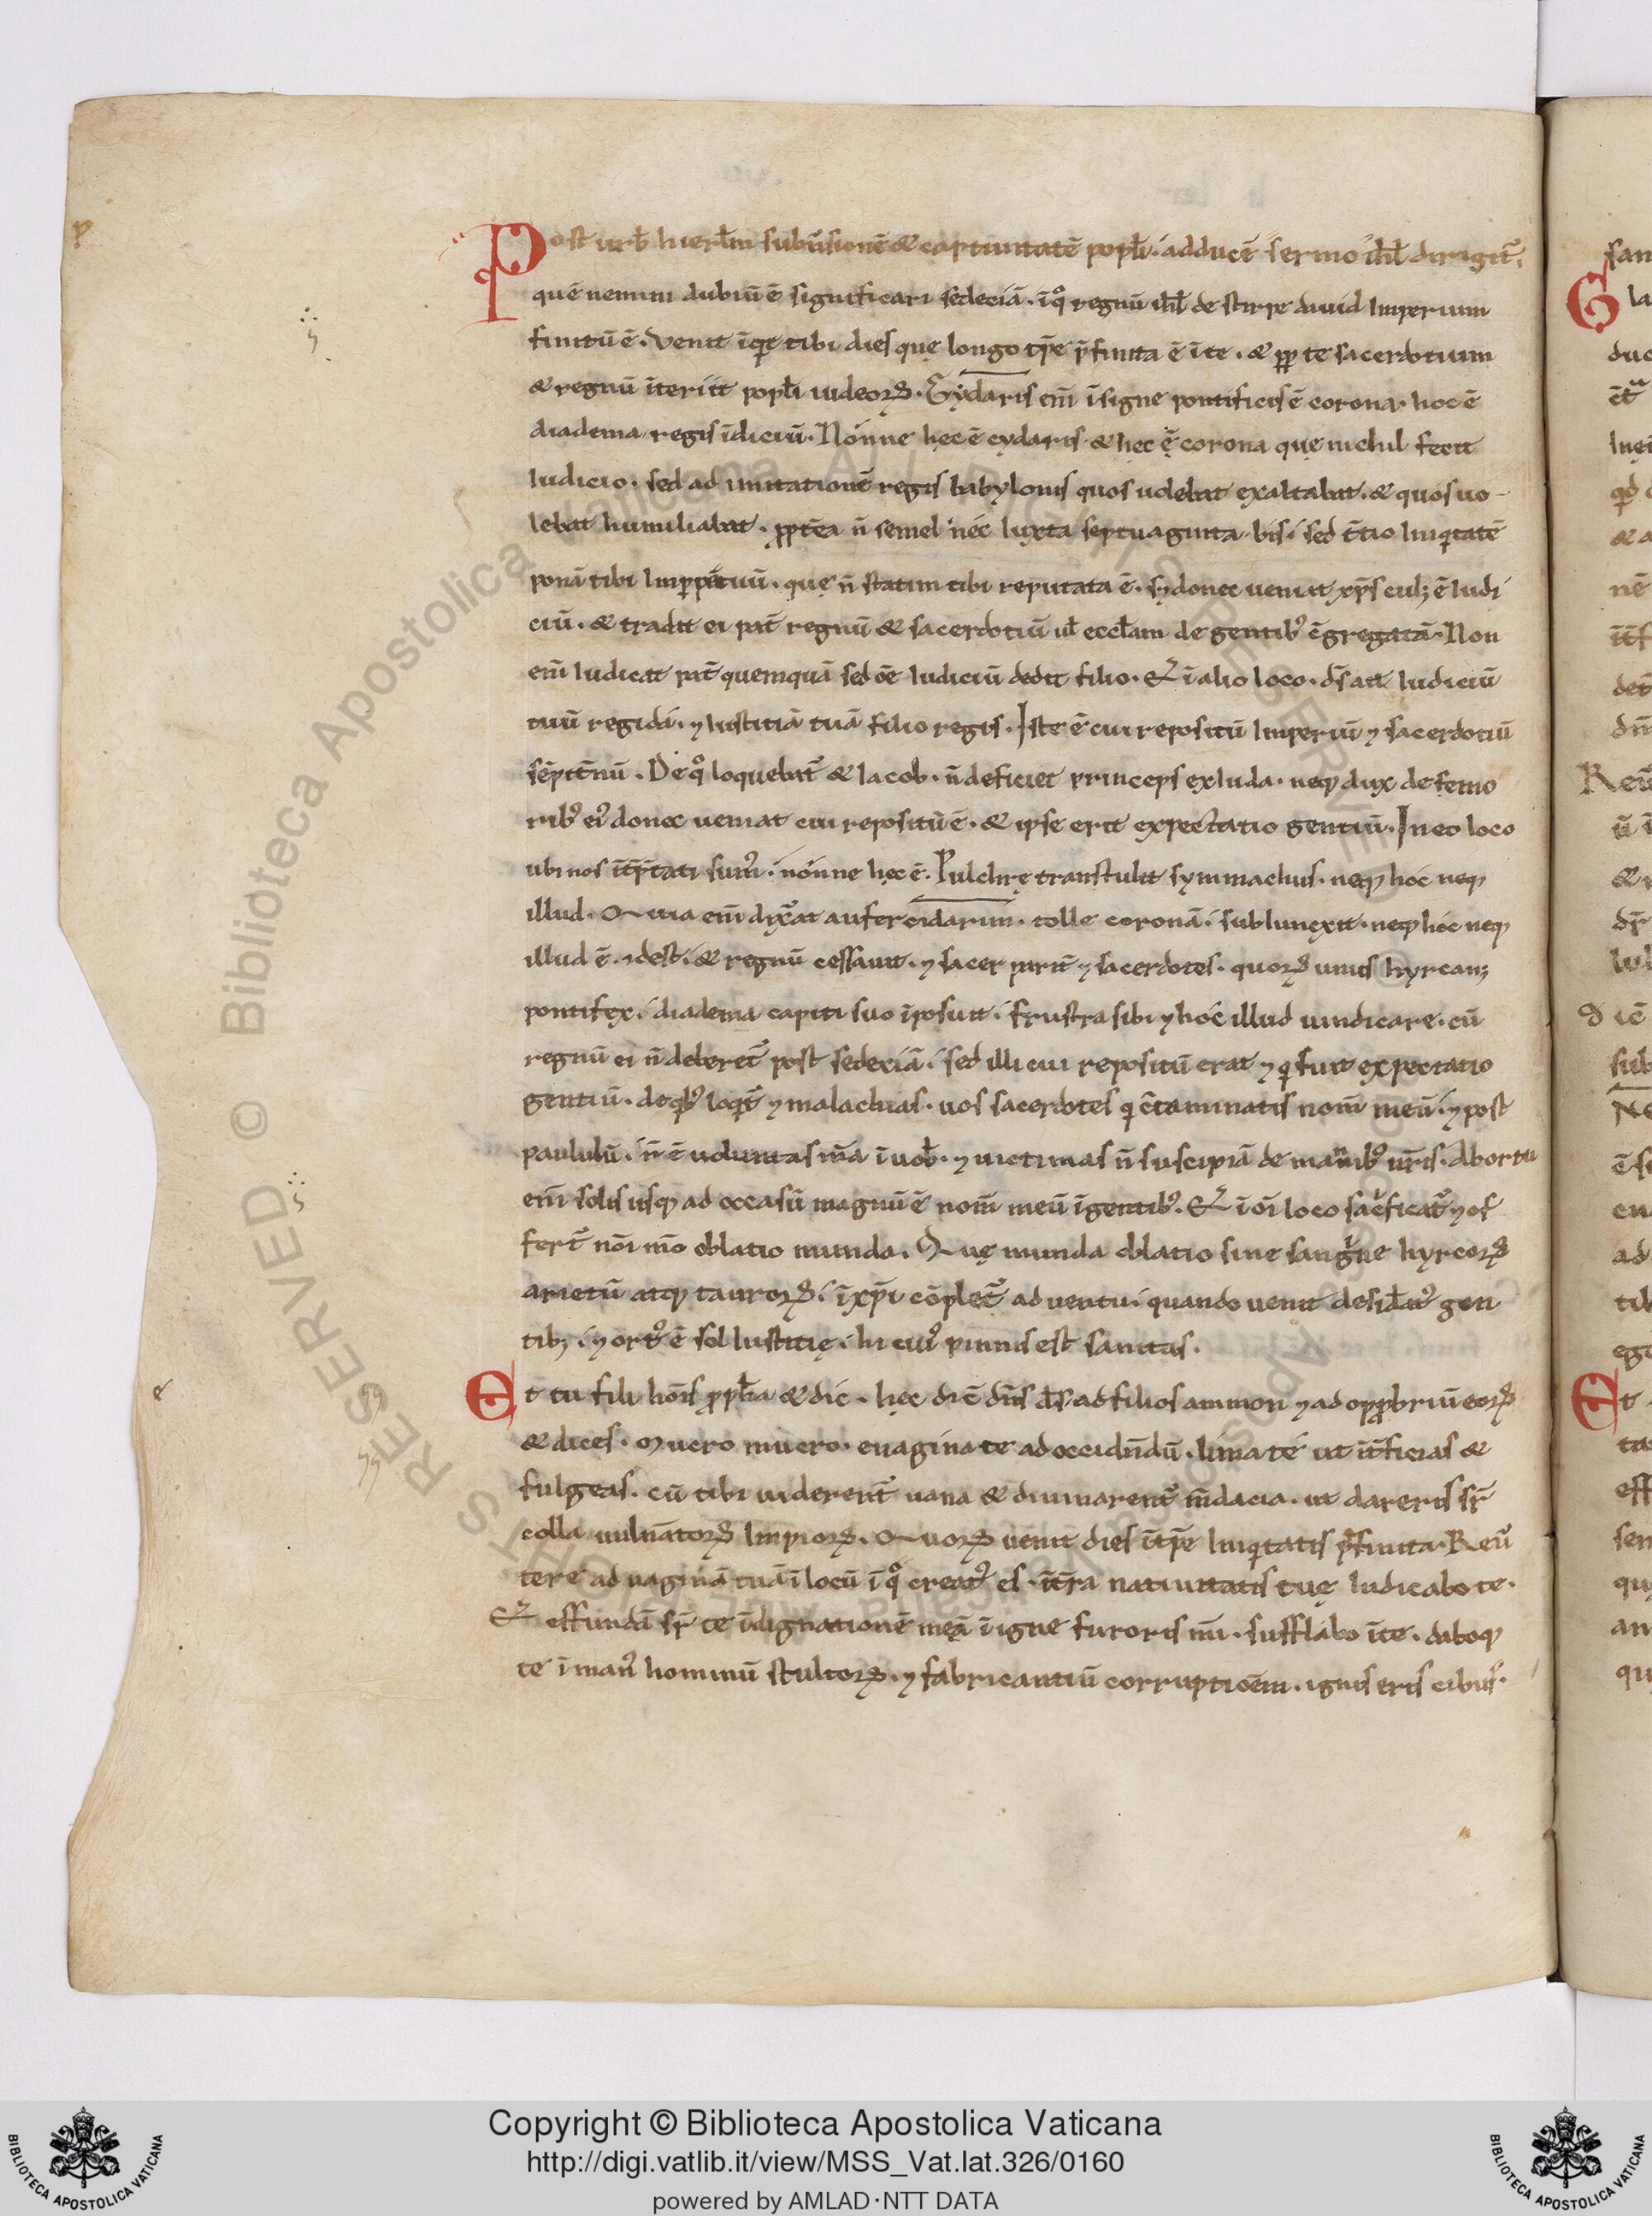 Post urb̄ hierl̄m subūsionē & captiuitatē popl̄i. ad ducē sermo isr̄l dirigit̄,
quē nemini dubiū ē significari sedeciā. ī qͦ regnū isr̄l de stirpe dauid Imperium
finitū ē. venit īquit tibi dies quę longo tp̄e p̄finita ē ī te. & ꝑp te sacerdotium
& regnū īteriit popl̄i iudeoꝝ. Cydaris em̄ īsigne pontificis ē corona. hoc ē
diadema regis īdiciū. Nónne hęc ē cydaris & hęc ē corona quę nichil fecit
Iudicio. sed ad imitationē regis babylonis quos uolebat exaltabat. & quos uo-
lebat humiliabat. ꝓpt̄ea n̄ semel néc Iuxta septuaginta bis. sed t̄tio Iniq̇tatē
ponā tibi Imꝑpetuū. quę n̄ statim tibi reputata ē. sꝫ donec ueniat xp̄s cuiꝰ ē Iudi
ciū. & tradit ei pat̄ regnū & sacerdotiū ul̄ eccl̄iam de gentibꝰ c̄gregatā. Non
em̄ Iudicat pat̄ quemquā sed oē Iudiciū dedit filio. Et ī alio loco. d̄s ait Iudiciū
tuū regi dá. ⁊ Iustitiā tuā filio regis. Iste ē cui repositū Imperiū ⁊ sacerdotiū
sēpit̄nū. De qͦ loquebat̄ & Iacob. n̄ deficiet princeps ex Iuda. neqꝫ dux de femo
ribꝰ eiꝰ donec ueniat cui repositū ē. & ipse erit expectatio gentiū. In eo loco
ubi nos īt̄p̄tati sumꝰ. nónne hęc ē. Pulchrę transtulit symmachus. neqꝫ hóc neqꝫ
illud. Quia em̄ dix̄at aufer cidarim. tolle coronā. subIunexit. neqꝫ hóc neqꝫ
illud ē. idest. & regnū cessauit. ⁊ sacer parit̄ ⁊ sacerdotes. quoꝝ unus hyrcanꝰ
pontifex. diadema capiti suo īposuit. frustra sibi ⁊ hóc illud uindicare. cū
regnū ei n̄ deberet̄ post sedeciā. sed illi cui repositū erat ⁊ q̇ fuit expectatio
gentiū. de qͥbꝰ loqͥt̄ ⁊ malachias. uos sacerdotes q̇ c̄taminatis nom̄ meū. ⁊ post
paululū. n̄ ē uoluntas m̄a ī uob̄. ⁊ uictimas n̄ suscipiā de manibꝰ ur̄is. Ab ortu
em̄ solis usqꝫ ad occasū magnū ē nom̄ meū ī gentibꝰ. Et ī oī loco sac̄ficat̄ ⁊ of
fert̄ nōi mō oblatio munda. Quę munda oblatio sine sangͥne hyrcoꝝ
arietū atqꝫ tauroꝝ. ī xp̄i cōplet̄ aduentu. quando uenit desidatꝰ gen
tibꝫ. ⁊ ortꝰ ē sol Iustitię. In cuiꝰ pinnis est sanitas.
Et tu fili hōis ꝓph̄a & dic. hęc dic̄ dn̄s d̄s ad filios ammon ⁊ ad opꝓbriū eoꝝ
& dices. Mucro mucro. euagina te ad occidn̄dū. lima te ut īt̄ficias &
fulgeas. cū tibi uiderent̄ uana & diuinarent̄ m̄dacia. ut dareris sr̄
colla uuln̄atoꝝ Impioꝝ. Quoꝝ uenit dies ī tp̄e Iniq̇tatis p̄finita. Reū
tere ad uaginā tuā ī locū ī qͦ creatꝰ es. īt̄ra natiuitatis tuę Iudicabo te.
Et effundā sr̄ te īdignationē meā ī igne furoris mī. sufflábo ī te. daboqꝫ
te ī manꝰ hominū stultoꝝ. ⁊ fabricantiū corruptiōem. ignis eris cibus.
Copyright © Biblioteca Apostolica Vaticana
http://digi.vatlib.it/view/MSS_Vat.lat.326/0160
powered by AMLAD·NTT DATA